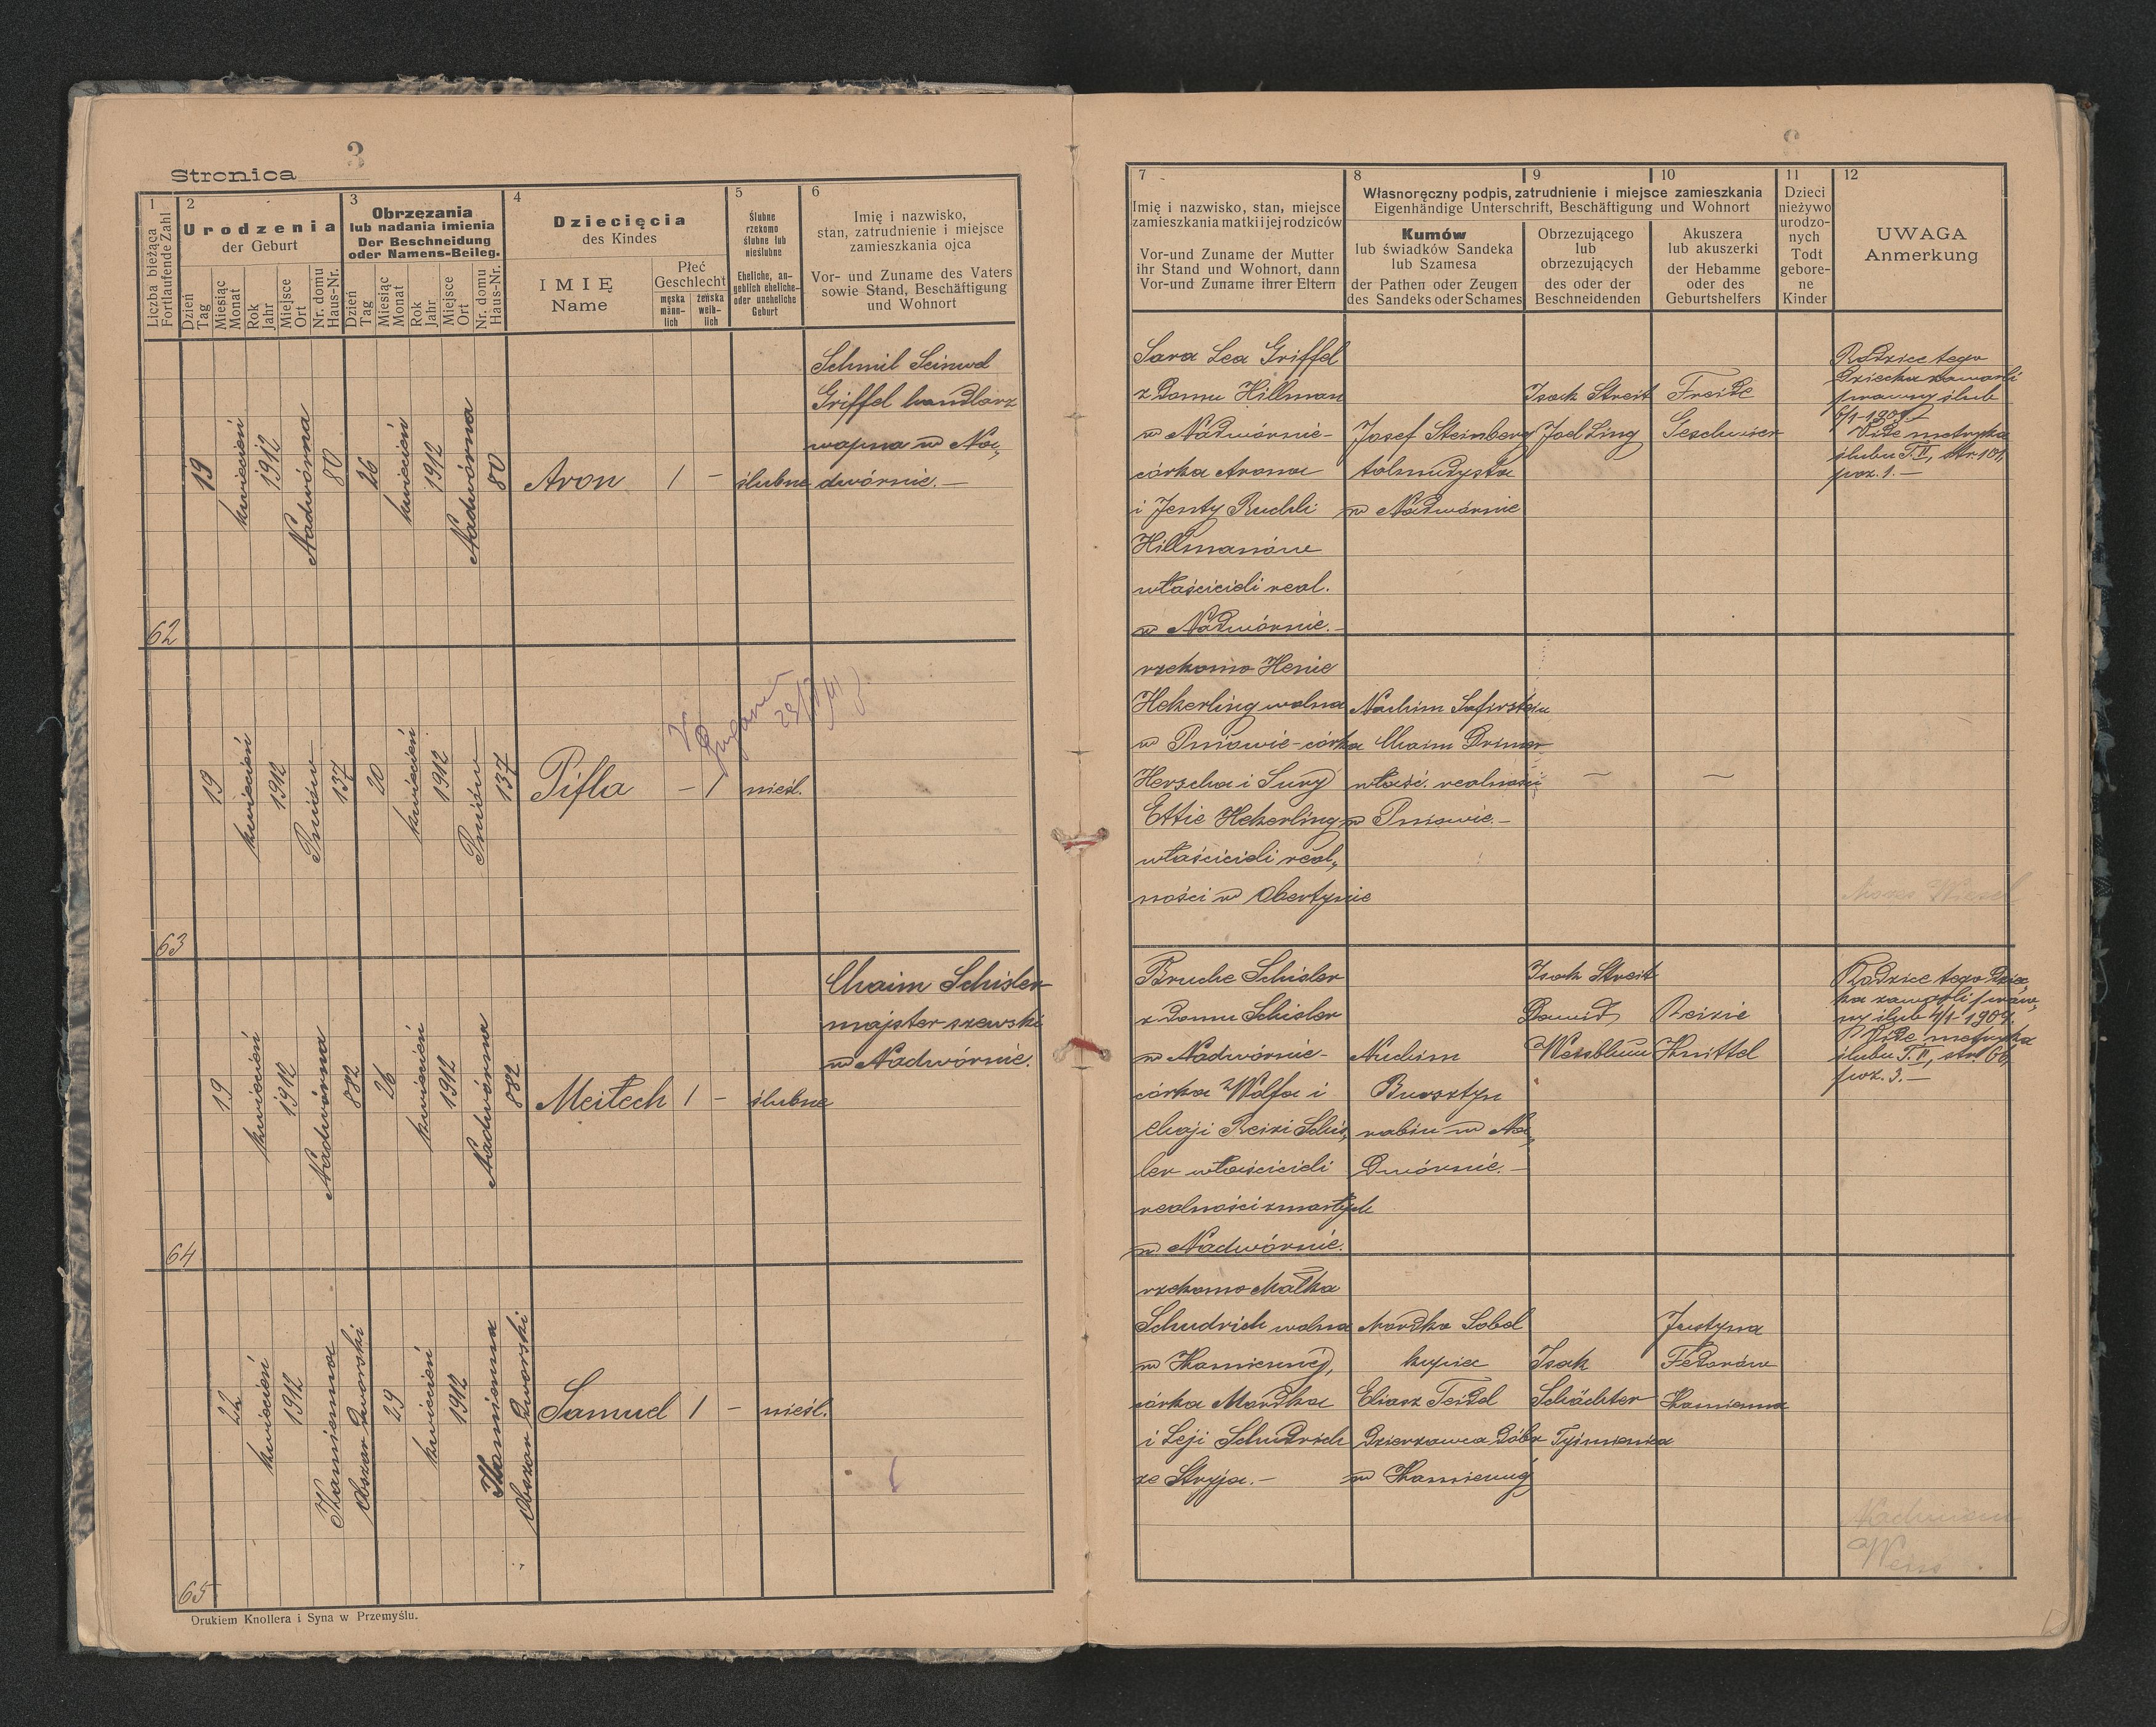 3
Stronica
1
Liczba bieżąca
Fortlaufende Zahl
2
Urodzenia
der Geburt
Dzień
Tag
Miesiąc
Monat
Rok
Jahr
Miejsce
Ort
Nr. domu
Haus-Nr.
3
Obrzęzania
lub nadania imienia
Der Beschneidung
oder Namens-Beileg.
Dzień
Tag
Miesiąc
Monat
Rok
Jahr
Miejsce
Ort
Nr. domu
Haus-Nr.
4
Dziecięcia
des Kindes
IMIĘ
Name
Płeć
Geschlecht
męska
männ-
lich
żeńska
weib-
lich
5
Ślubne
rzekomo
ślubne lub
nieślubne
Eheliche, an-
geblich eheliche-
oder uneheliche
Geburt
6
Imię i nazwisko,
stan, zatrudnienie i miejsce
zamieszkania ojca
Vor- und Zuname des Vaters
sowie Stand, Beschäftigung
und Wohnort
7
Imię i nazwisko, stan, miejsce
zamieszkania matki i jej rodziców
Vor-und Zuname der Mutter
ihr Stand und Wohnort, dann
Vor-und Zuname ihrer Eltern
8
9
10
Własnoręczny podpis, zatrudnienie i miejsce zamieszkania
Eigenhändige Unterschrift, Beschäftigung und Wohnort
Kumów
lub świadków Sandeka
lub Szamesa
der Pathen oder Zeugen
des Sandeks oder Schames
Obrzezującego
lub
obrzezujących
des oder der
Beschneidenden
Akuszera
lub akuszerki
der Hebamme
oder des
Geburtshelfers
11
Dzieci
nieżywo
urodzo-
nych
Todt
gebore-
ne
Kinder
12
UWAGA
Anmerkung
62
19
kwiecień
1912
Nadwórna
80
26
kwiecień
1912
Nadwórna
80
Aron
1
-
ślubne
Schmil Seinwel
Griffel handlarz
wapna w Na„
dwórnie.—
Sara Lea Griffel
z domu Hillman
w Nadwórnie-
córka Arona
i Jenty Ruchli
Hillmanów
właścicieli real.
w Nadwórnie.-
Josef Steinberg
talmudysta
w Nadwórnie
Isak Streit
Joel Ling
Freide
Geschwier
Rodzice tego
dziecka zawarli
prawny ślub
Vide metryka
ślubu T.II, str. 101,
poz. 1.—
63
19
kwiecień
1912
Pniów
137
20
kwiecień
1912
Pniów
137
Pifla
-
1
nieśl.
rzekomo Henie
Hekerling wolna
w Pniowie-córka
Herscha i Sury
Ettie Hekerling
właścicieli real„
ności w Obertynie
Nachim Safirstein
Chaim Drimer
właśc. realności
w Pniowie.-
—
—
64
19
kwiecień
1912
Nadwórna
882
26
kwiecień
1912
Nadwórna
882
Meilech
1
-
ślubne
Chaim Schisler
majster szewski
w Nadwórnie.
Bruche Schisler
z domu Schisler
w Nadwórnie-
córka Wolfa i
Chaji Reizi Schis„
ler właścicieli
realności zmarłych
w Nadwórnie.
Nuchim
Bursztyn
rabin w Na„
dwórnie.-
Isak Streit
Dawid
Weissblum
Reizie
Knittel
Rodzice tego dziec„
ka zawarli praw„
ny ślub 4/1-1904.
Vide metryka
ślubu T.II, str. 66,
poz. 3.—
65
22
kwiecień
1912
Kamienna
Obszar dworski
29
kwiecień
1912
Kamienna
Obszar dworski
Samuel
1
-
nieśl.
rzekomo Małka
Schudrich wolna
w Kamiennej,
córka Mordka
i Leji Schudrich
ze Stryja.-
Mordko Sobel
kupiec
Eliasz Teidel
Dzierżawca dóbr
w Kamiennej
Isak
Schächter
Tyśmienica
Justyna
Fedorów
Kamienna
Nachman
Weiss
Drukiem Knollera i Syna w Przemyślu.